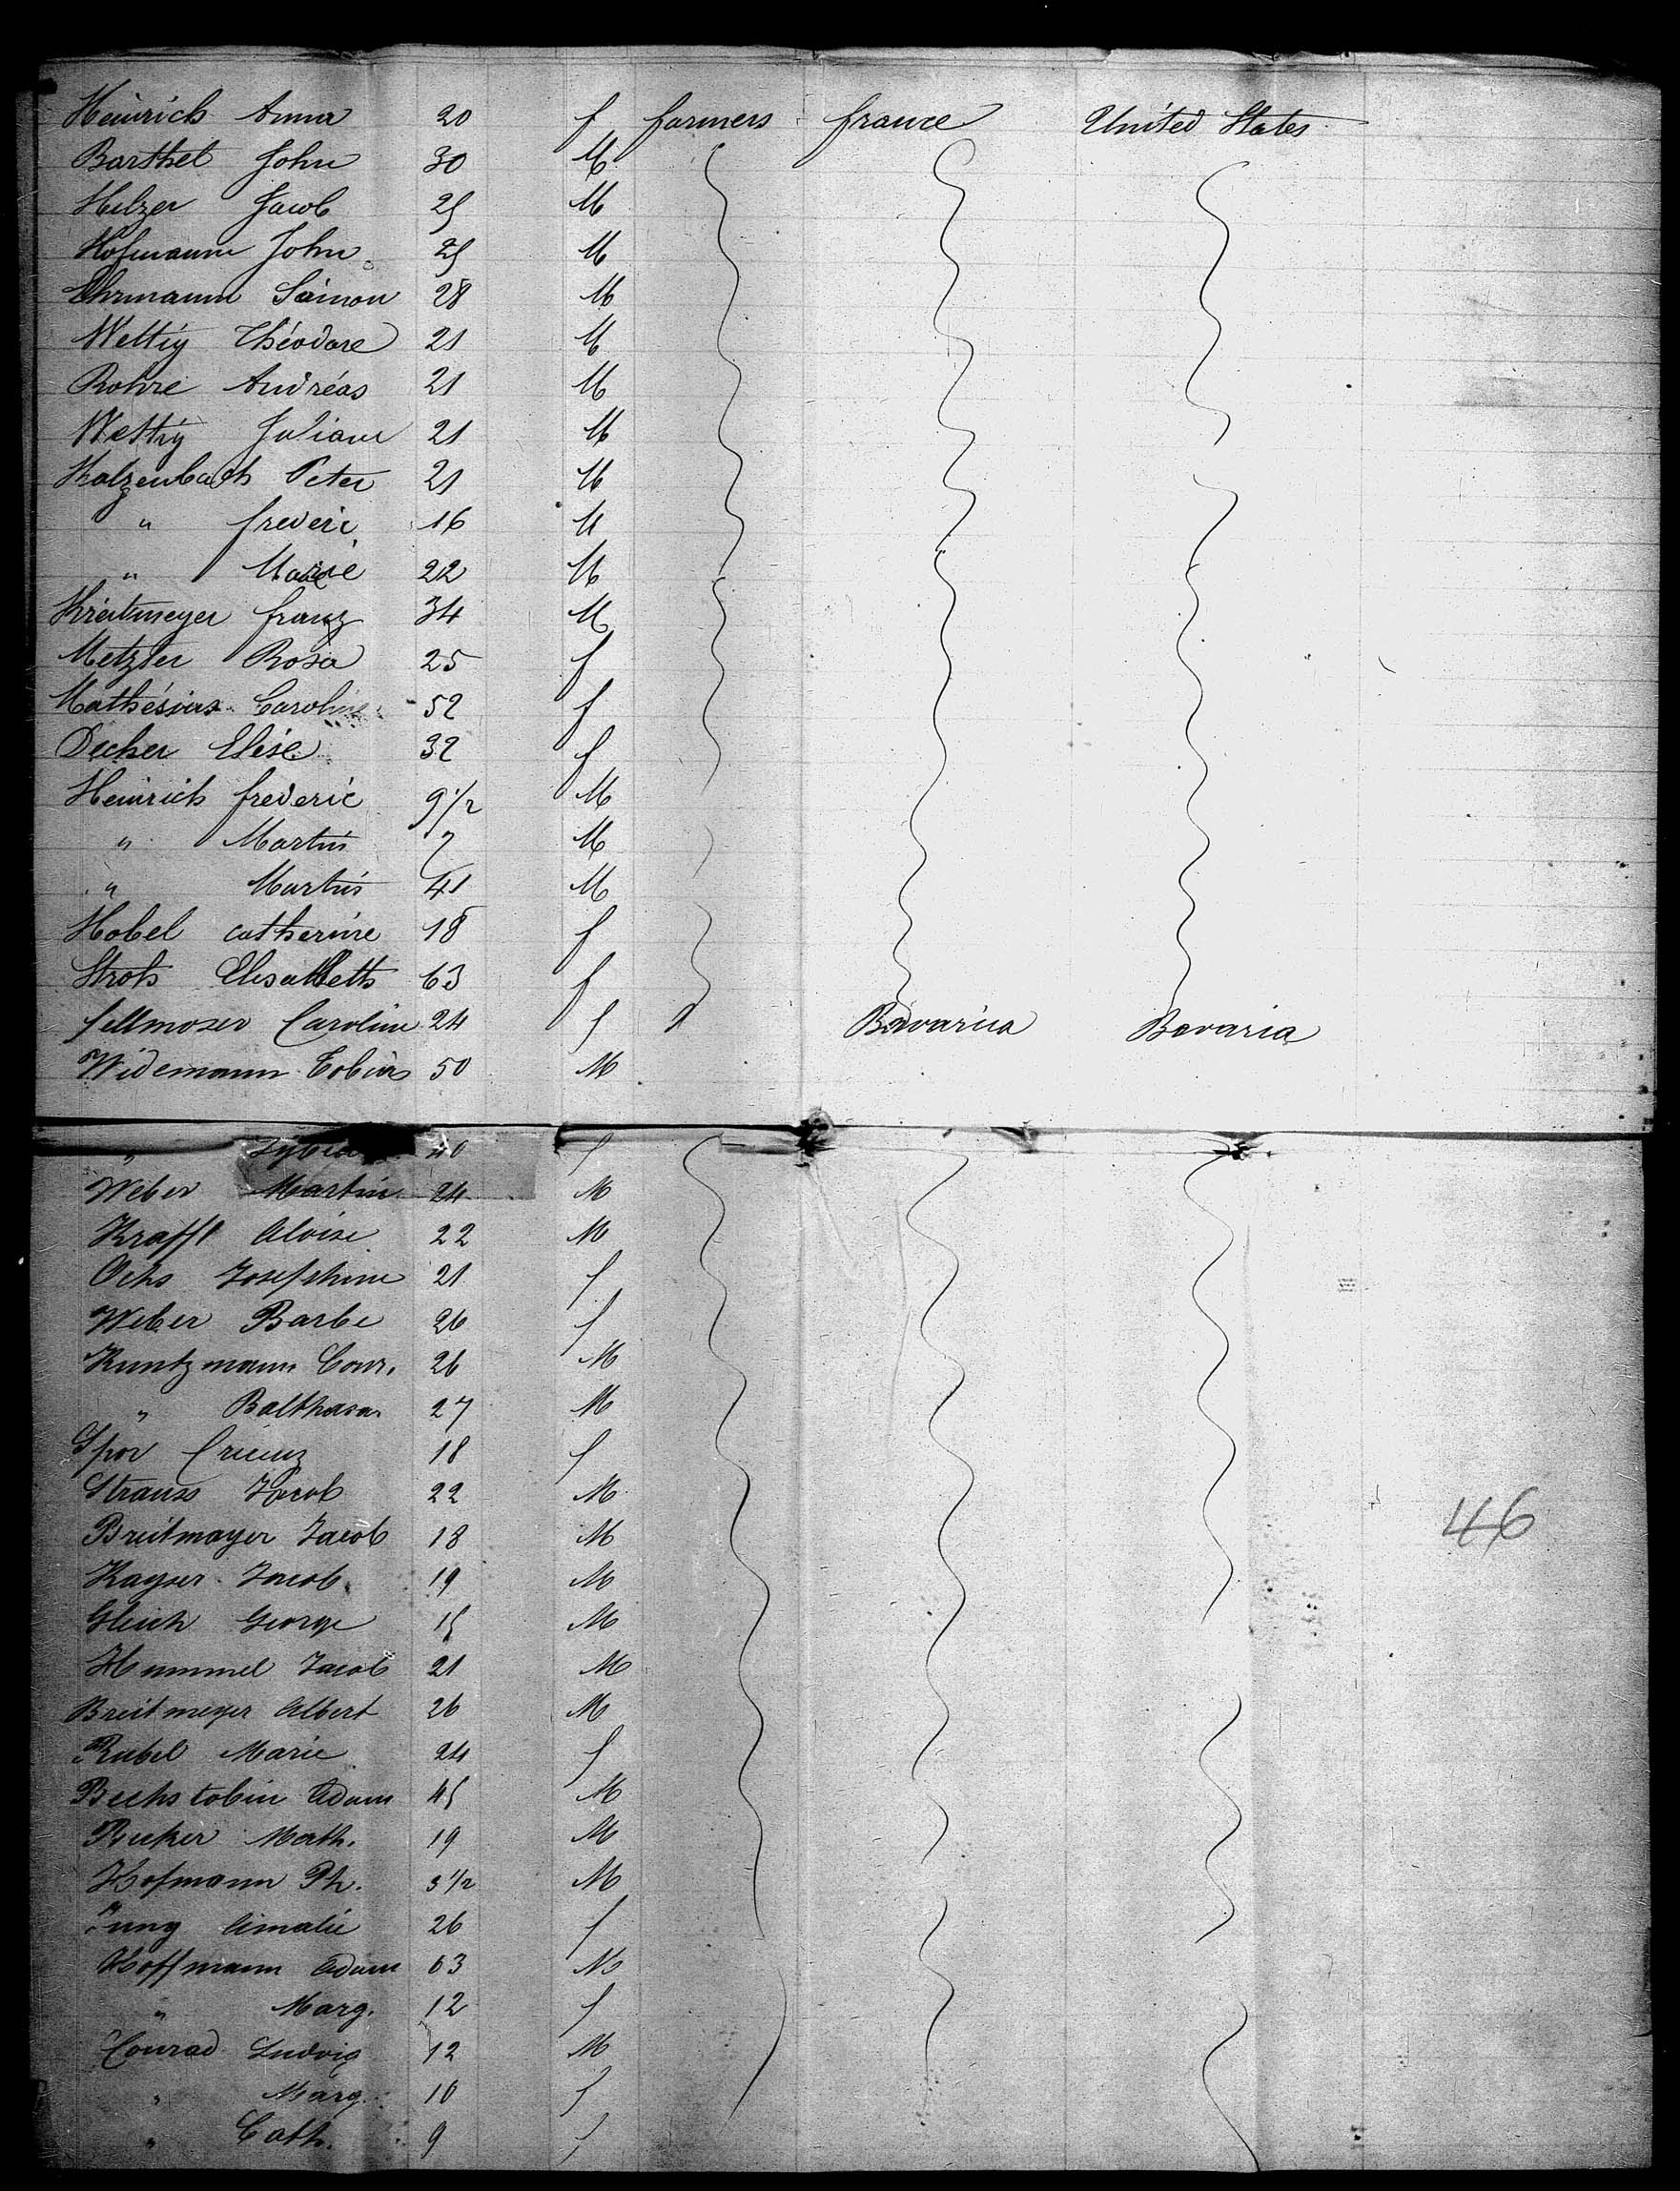 Heinrich Anna 20 f farmers france United States
Barthel John 30 M
Helzer Jacob 25 M
Hofmann John 25 M
Ehrmann Saimon 28 M
Wettig Théodore 21 M
Rohre Andréas 21 M
Wettig Juliane 21 M
Kalzenbach Peter 21 M
" frederic 16 M
" Marie 22 M
Kreitmeyer franz 34 M
Metzler Rosa 25 f
Mathésius Caroline 52 f
Decker Elise 32 f
Heinrich frederic 9 1/2 M
" Martin 7 M
" Martin 41 M
Hobel catherine 18 f
Stroh Elisabeth 63 f
fellmoser Caroline 24 f " Bavaria Bavaria
Widemann Tobias 50 M
" 40 f
Weber Martin 24 M
Krafft Aloise 22 M
Ochs Josephine 21 f
Weber Barbe 26 f
Kuntzmann Conr. 26 M
" Balthasar 27 M
Spor 18 f
Strauss Jacob 22 M
Breitmayer Jacob 18 M
Kayser Jacob 19 M
Gleich George 15 M
Hummel Jacob 21 M
Breitmeyer Albert 26 M
Rubel Marie 24 f
Bechstobin Adam 45 M
Math. 19 M
Hofmann Ph. 3 1/2 M
Jung Amalie 26 f
Hoffmann Adam 63 M
" Marg. 12 f
Conrad Ludwig 12 M
" Marg. 10 f
" Cath. 9 f
46